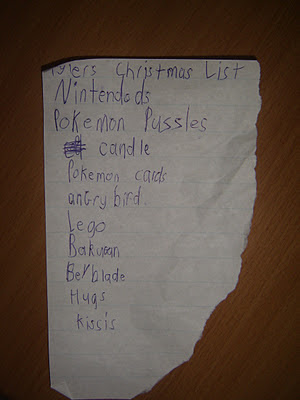 Tylers Christmas List
Nintendods
Pokemon Pussles
candle
Pokemon cards
angry bird.
Lego
Bakugan
Beyblade
Hugs
Kissis